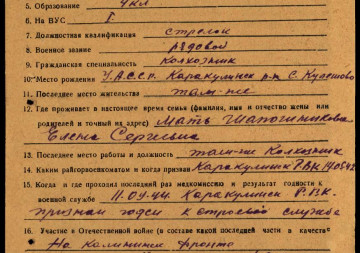 5. Образование 4 кл
6. На ВУС I
7. Должностная квалификация стрелок
8. Военное звание рядовой
9. Гражданская специальность Колхозник
10. Место рождения У.А.С.С.Р. Каракулинск р-н с. Кулюшево
11. Последнее место жительства там-же
12. Где проживает в настоящее время семья (фамилия, имя и отчество жены или
родителей и точный их адрес) Мать Шапошникова
Елена Сергеевна
13. Последнее место работы и должность там-же Колхозник
14. Каким райгорвоенкоматом и когда призван Каракулинск РВК
15. Когда и где проходил последний раз медкомиссию и результат годности к
военной службе 11.04.44. Каракулинск Р.В.К.
признан годен к строевой службе
16. Участие в Отечественной войне (в составе какой последней части в качестве
На Калининск фронта